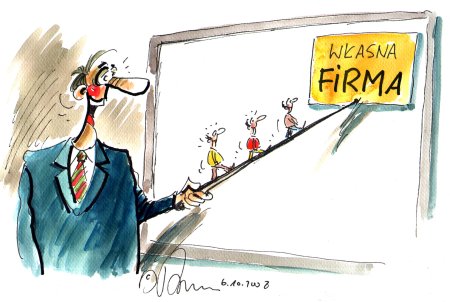 WŁASNA
FIRMA
6.10.2008